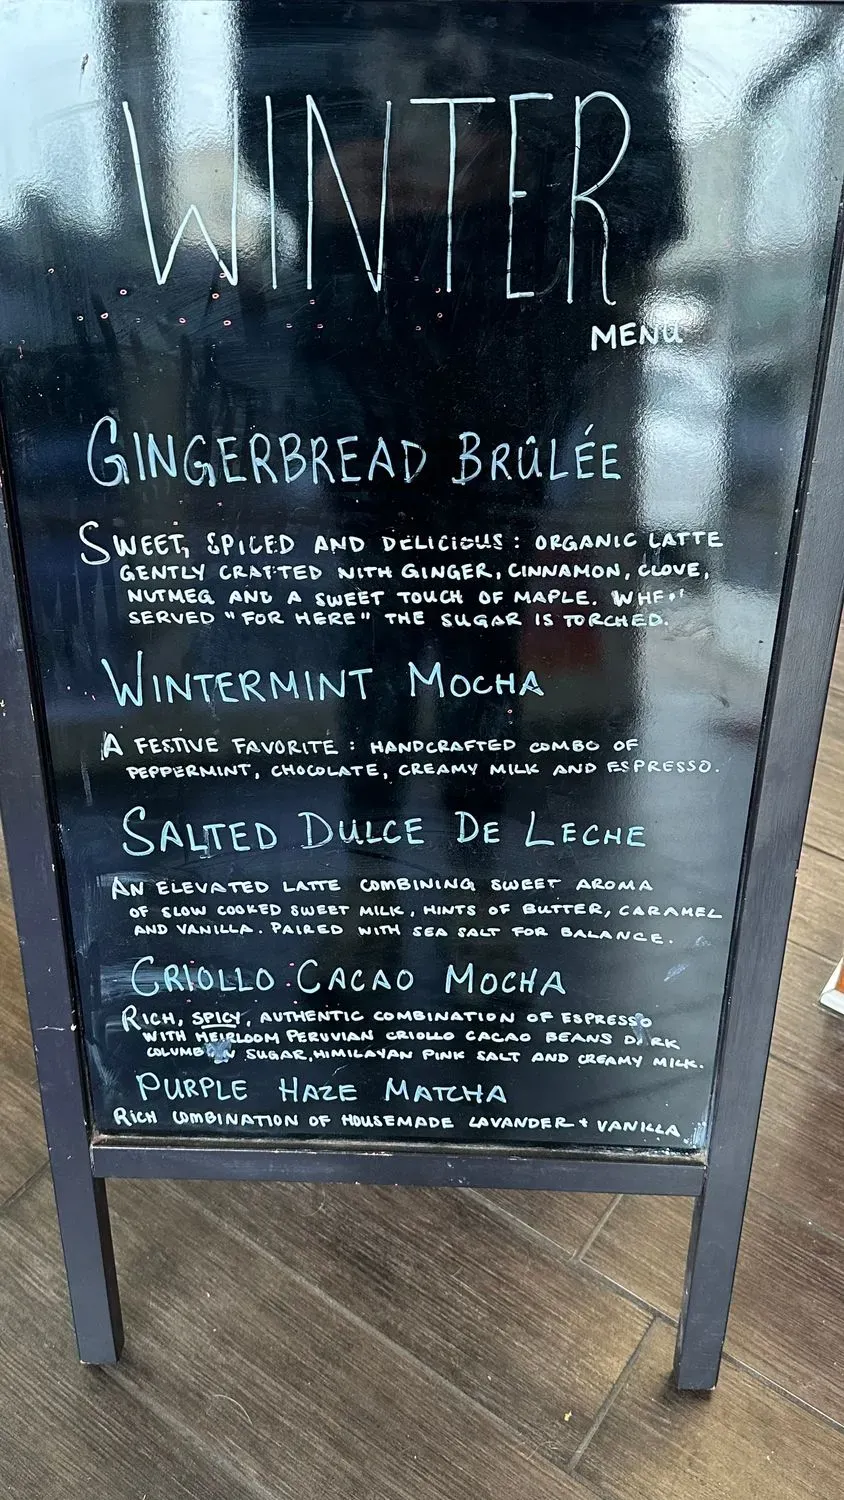 WINTER
MENU
GINGERBREAD BRÛLÉE
SWEET, SPICED AND DELICIOUS : ORGANIC LATTE
GENTLY CRAFTED WITH GINGER, CINNAMON, CLOVE,
NUTMEG AND A SWEET TOUCH OF MAPLE.
SERVED "FOR HERE" THE SUGAR IS TORCHED.
WINTERMINT MOCHA
A FESTIVE FAVORITE : HANDCRAFTED COMBO OF
PEPPERMINT, CHOCOLATE, CREAMY MILK AND ESPRESSO.
SALTED DULCE DE LECHE
AN ELEVATED LATTE COMBINING SWEET AROMA
OF SLOW COOKED SWEET MILK, HINTS OF BUTTER, CARAMEL
AND VANILLA. PAIRED WITH SEA SALT FOR BALANCE.
CRIOLLO CACAO MOCHA
RICH, SPICY, AUTHENTIC COMBINATION OF ESPRESSO
WITH HEIRLOOM PERUVIAN CRIOLLO CACAO BEANS DARK
SUGAR, HIMILAYAN PINK SALT AND CREAMY MILK.
PURPLE HAZE MATCHA
RICH COMBINATION OF HOUSEMADE LAVANDER + VANILLA